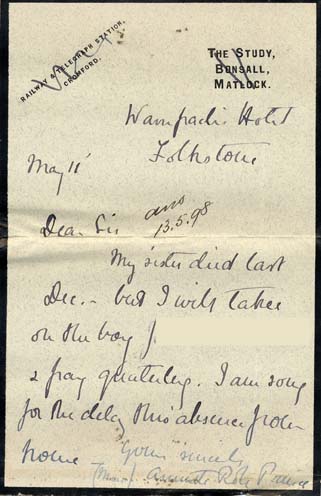 RAILWAY & TELEGRAPH STATION,
CROMFORD.
THE STUDY,
BONSALL,
MATLOCK.
Hotel
Folkstone
May 11
Dear Sir
ans
13.5.98
My sister died last
Dec. - but I will take
on the boy J
& pay quarterly. I am sorry
for the delay thro' absence from
home Yours sincerely
(Mrs)